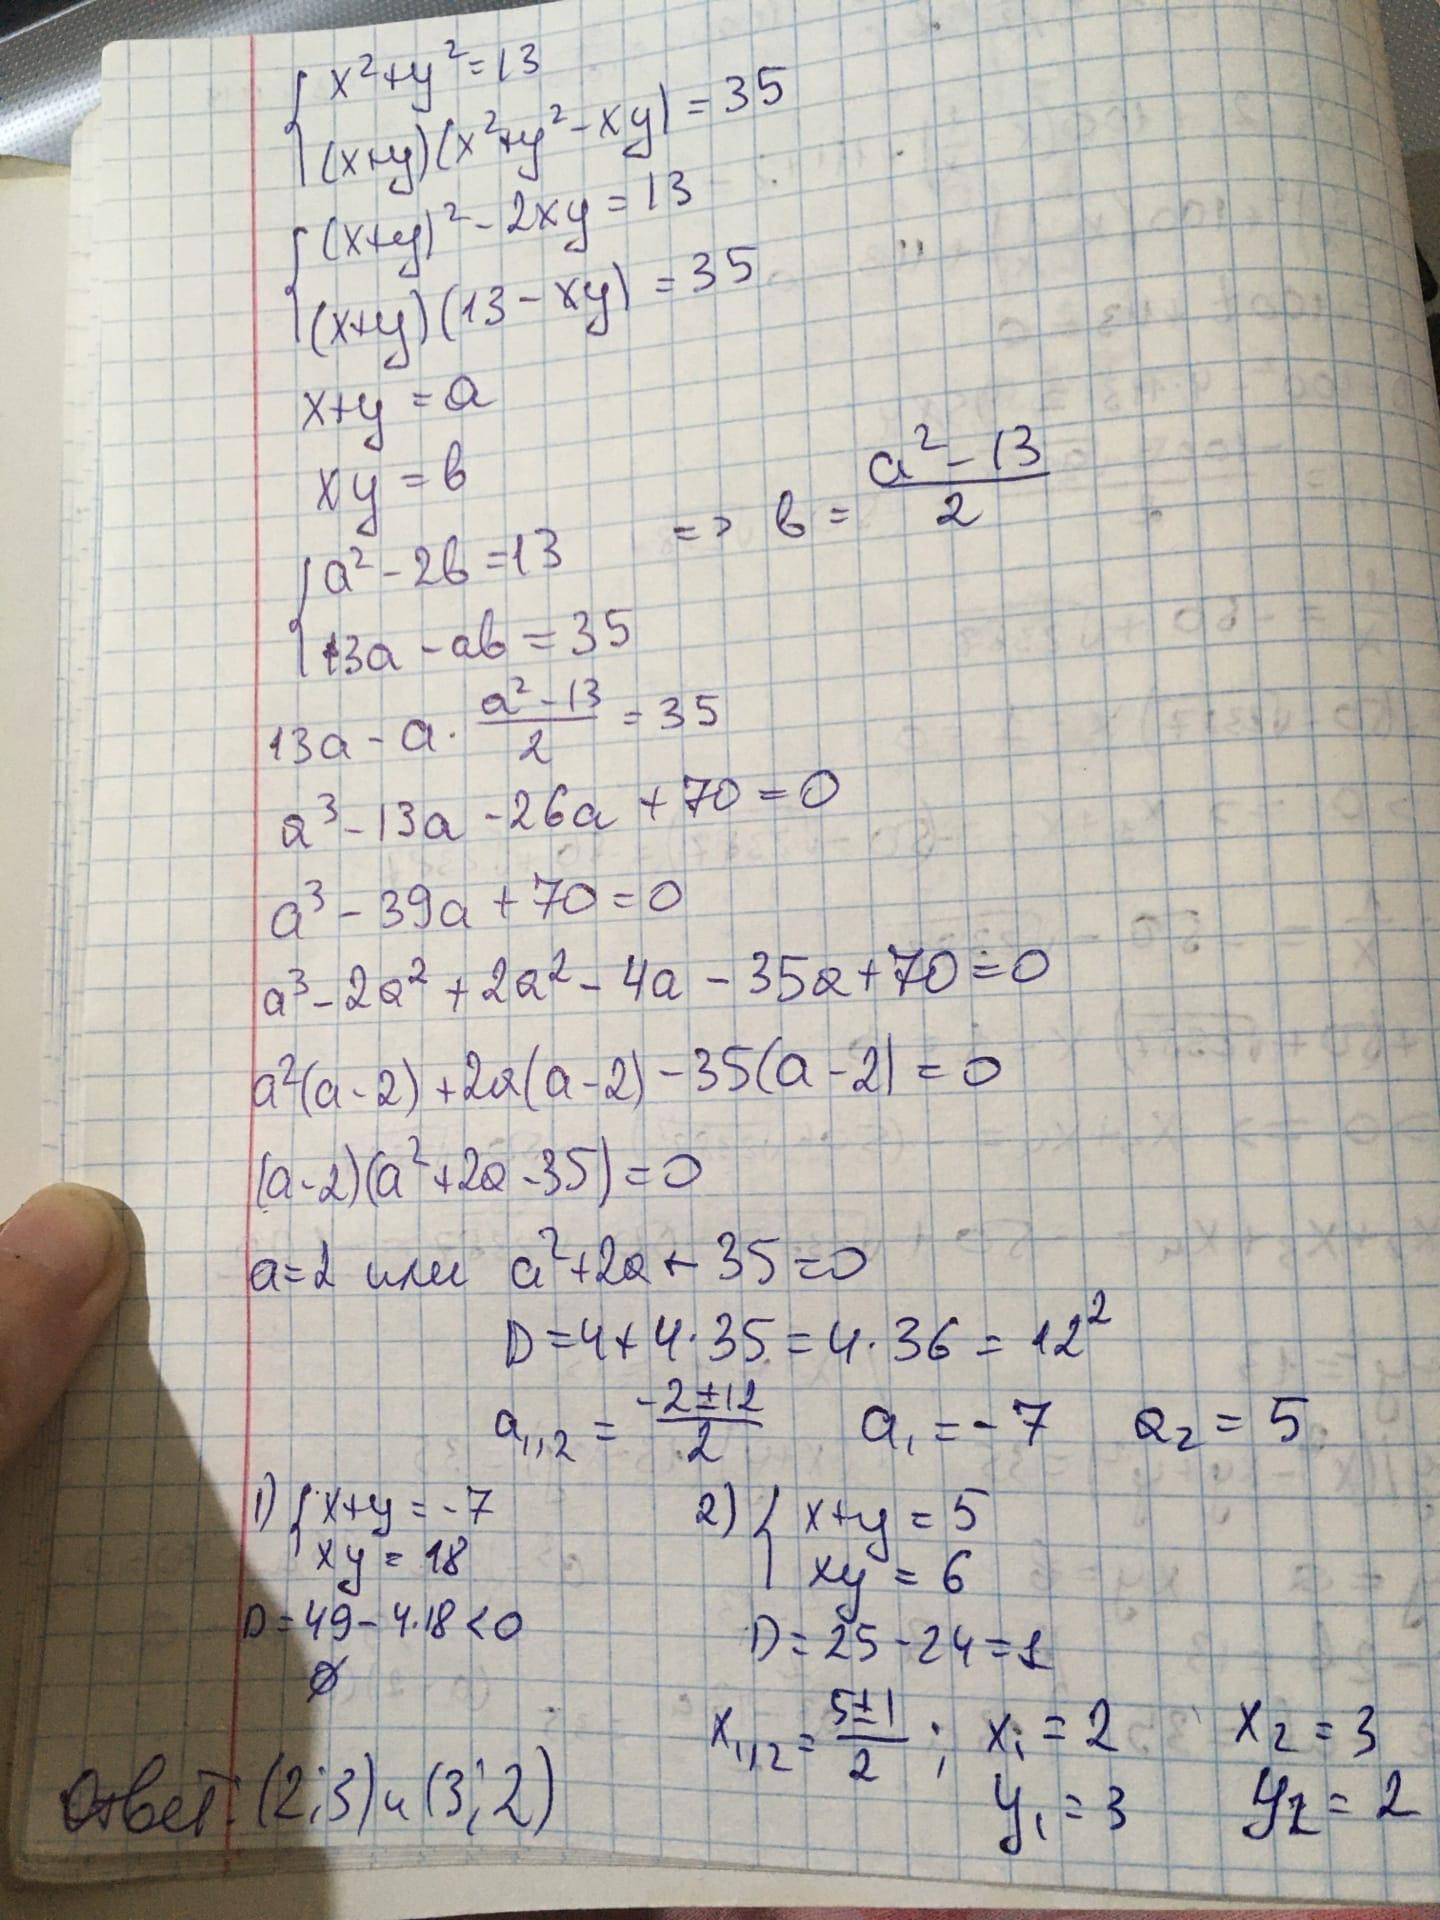 x²+y²=13
(x+y)(x²+y²-xy)=35
(x+y)²-2xy=13
(x+y)(13-xy)=35
x+y=a
xy=в
a²-2в=13 => в=(a²-13)/2
13a-aв=35
13a-a·(a²-13)/2=35
a³-13a-26a+70=0
a³-39a+70=0
a³-2a²+2a²-4a-35a+70=0
a²(a-2)+2a(a-2)-35(a-2)=0
(a-2)(a²+2a-35)=0
a=2 или a²+2a-35=0
D=4+4·35=4·36=12²
a₁,₂=(-2±12)/2 a₁=-7 a₂=5
1) x+y=-7 2) x+y=5
xy=18 xy=6
D=49-4·18<0 D=25-24=1
∅
x₁,₂=(5±1)/2; x₁=2 x₂=3
y₁=3 y₂=2
Ответ: (2;3) и (3;2)